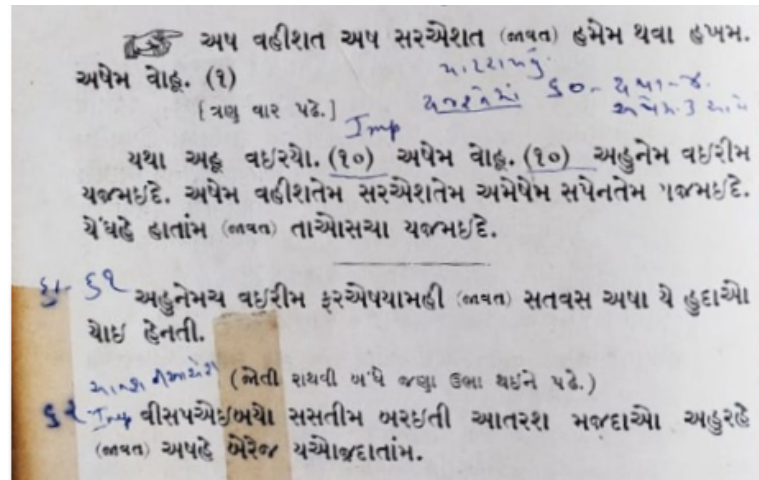 અષ વહીશત અષ સરએશત (જાવત) હમેમ થવા હખમ.
અષેમ વોહૂ. (૧)
[ત્રણ વાર પઢે.]
૬૦-
Imp
યથા અહૂ વઇરયો. (૧૦) અષેમ વોહૂ. (૧૦) અહુનેમ વઇરીમ
યજમઇદે. અષેમ વહીશતેમ સરએશતેમ અમેષેમ સપેનતેમ યજમઇદે.
યેંઘહે હાતાંમ (જાવત) તાઓસચા યજમઇદે.
૬૧
અહુનેમચ વઇરીમ ફરએષયામહી (જાવત) સતવસ અષા યે હુદાઓ
યોઇ હેનતી.
(જોતી રાથવી બંધે જણા ઉભા થઇને પઢે.)
૬૨ Imp વીસપએઇબયો સસતીમ બરઇતી આતરશ મજદાઓ અહુરહે
(જાવત) અષહે બેરેજ યઓજદાતાંમ.